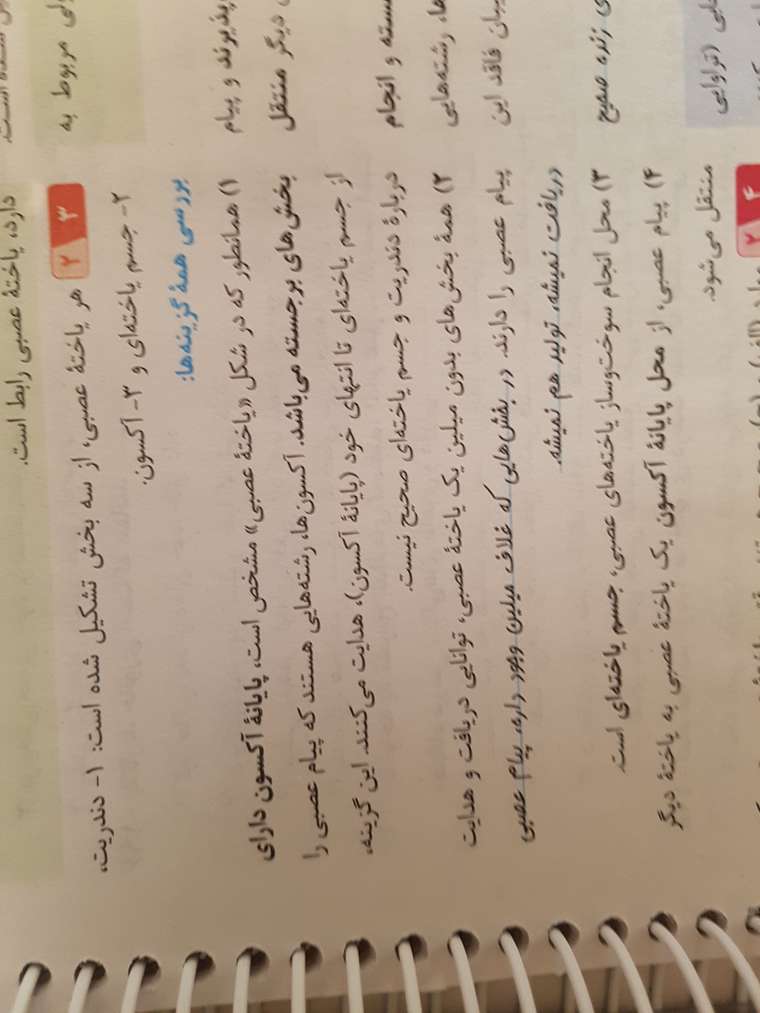 دارد، یاختهٔ عصبی رابط است.
۳ ۲ هر یاختهٔ عصبی، از سه بخش تشکیل شده است: ۱- دندریت،
۲- جسم یاخته‌ای و ۳- آکسون.
بررسی همهٔ گزینه‌ها:
۱) همانطور که در شکل «یاختهٔ عصبی» مشخص است، پایانهٔ آکسون دارای
بخش‌های برجسته می‌باشد. آکسون‌ها، رشته‌هایی هستند که پیام عصبی را
از جسم یاخته‌ای تا انتهای خود (پایانهٔ آکسون)، هدایت می‌کنند. این گزینه،
دربارهٔ دندریت و جسم یاخته‌ای صحیح نیست.
۲) همهٔ بخش‌های بدون میلین یک یاختهٔ عصبی، توانایی دریافت و هدایت
پیام عصبی را دارند. در بخش‌هایی که غلاف میلین وجود داره، پیام عصبی
دریافت نمیشه، تولید هم نمیشه.
۳) محل انجام سوخت‌وساز یاخته‌های عصبی، جسم یاخته‌ای است.
۴) پیام عصبی، از محل پایانهٔ آکسون یک یاختهٔ عصبی به یاختهٔ دیگر
منتقل می‌شود.
۴ ۲
مربوط به
پذیرند و پیام
دیگر منتقل
و انجام
رشته‌هایی
فاقد این
زنده صحیح
(تراوایی